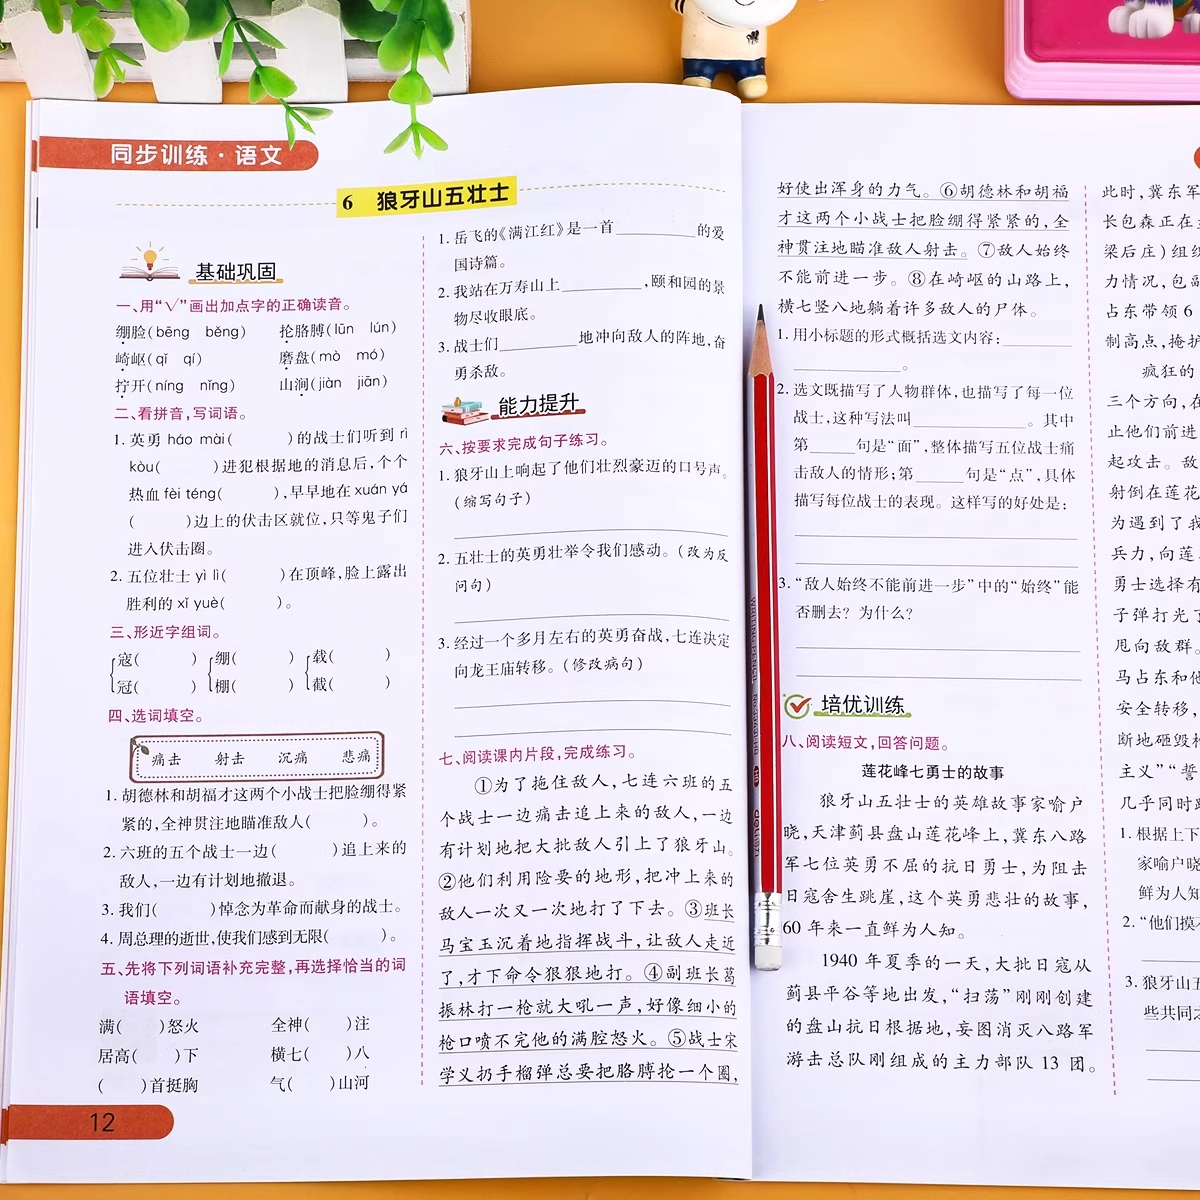 同步训练·语文
6 狼牙山五壮士
基础巩固
一、用“√”画出加点字的正确读音。
绷脸(bēng běng) 抡胳膊(lūn lún)
崎岖(qǐ qí) 磨盘(mò mó)
拧开(níng nǐng) 山涧(jiàn jiān)
二、看拼音,写词语。
1. 英勇 háo mài( )的战士们听到 rì
kòu( )进犯根据地的消息后,个个
热血 fèi téng( ),早早地在 xuán yá
( )边上的伏击区就位,只等鬼子们
进入伏击圈。
2. 五位壮士 yì lì( )在顶峰,脸上露出
胜利的 xǐ yuè( )。
三、形近字组词。
寇( ) 绷( ) 载( )
冠( ) 棚( ) 截( )
四、选词填空。
痛击 射击 沉痛 悲痛
1. 胡德林和胡福才这两个小战士把脸绷得紧
紧的,全神贯注地瞄准敌人( )。
2. 六班的五个战士一边( )追上来的
敌人,一边有计划地撤退。
3. 我们( )悼念为革命而献身的战士。
4. 周总理的逝世,使我们感到无限( )。
五、先将下列词语补充完整,再选择恰当的词
语填空。
满( )怒火 全神( )注
居高( )下 横七( )八
( )首挺胸 气( )山河
12
1. 岳飞的《满江红》是一首________的爱
国诗篇。
2. 我站在万寿山上________,颐和园的景
物尽收眼底。
3. 战士们________地冲向敌人的阵地,奋
勇杀敌。
能力提升
六、按要求完成句子练习。
1. 狼牙山上响起了他们壮烈豪迈的口号声。
(缩写句子)
2. 五壮士的英勇壮举令我们感动。(改为反
问句)
3. 经过一个多月左右的英勇奋战,七连决定
向龙王庙转移。(修改病句)
七、阅读课内片段,完成练习。
①为了拖住敌人,七连六班的五
个战士一边痛击追上来的敌人,一边
有计划地把大批敌人引上了狼牙山。
②他们利用险要的地形,把冲上来的
敌人一次又一次地打了下去。③班长
马宝玉沉着地指挥战斗,让敌人走近
了,才下命令狠狠地打。④副班长葛
振林打一枪就大吼一声,好像细小的
枪口喷不完他的满腔怒火。⑤战士宋
学义扔手榴弹总要把胳膊抡一个圈,
好使出浑身的力气。⑥胡德林和胡福
才这两个小战士把脸绷得紧紧的,全
神贯注地瞄准敌人射击。⑦敌人始终
不能前进一步。⑧在崎岖的山路上,
横七竖八地躺着许多敌人的尸体。
1. 用小标题的形式概括选文内容:________
________。
2. 选文既描写了人物群体,也描写了每一位
战士,这种写法叫________。其中
第____句是“面”,整体描写五位战士痛
击敌人的情形;第____句是“点”,具体
描写每位战士的表现。这样写的好处是:
3. “敌人始终不能前进一步”中的“始终”能
否删去?为什么?
培优训练
八、阅读短文,回答问题。
莲花峰七勇士的故事
狼牙山五壮士的英雄故事家喻户
晓,天津蓟县盘山莲花峰上,冀东八路
军七位英勇不屈的抗日勇士,为阻击
日寇舍生跳崖,这个英勇悲壮的故事,
60 年来一直鲜为人知。
1940 年夏季的一天,大批日寇从
蓟县平谷等地出发,“扫荡”刚刚创建
的盘山抗日根据地,妄图消灭八路军
游击总队刚组成的主力部队 13 团。
此时,冀东军
长包森正在
梁后庄)组织
力情况,包副
占东带领 6
制高点,掩护
疯狂的
三个方向,在
止他们前进
起攻击。敌
射倒在莲花
为遇到了我
兵力,向莲
勇士选择有
子弹打光了
甩向敌群。
马占东和他
安全转移,
断地砸毁枪
主义”“誓
几乎同时跳
1. 根据上下
家喻户晓
鲜为人知
2. “他们摸不
3. 狼牙山五
些共同之